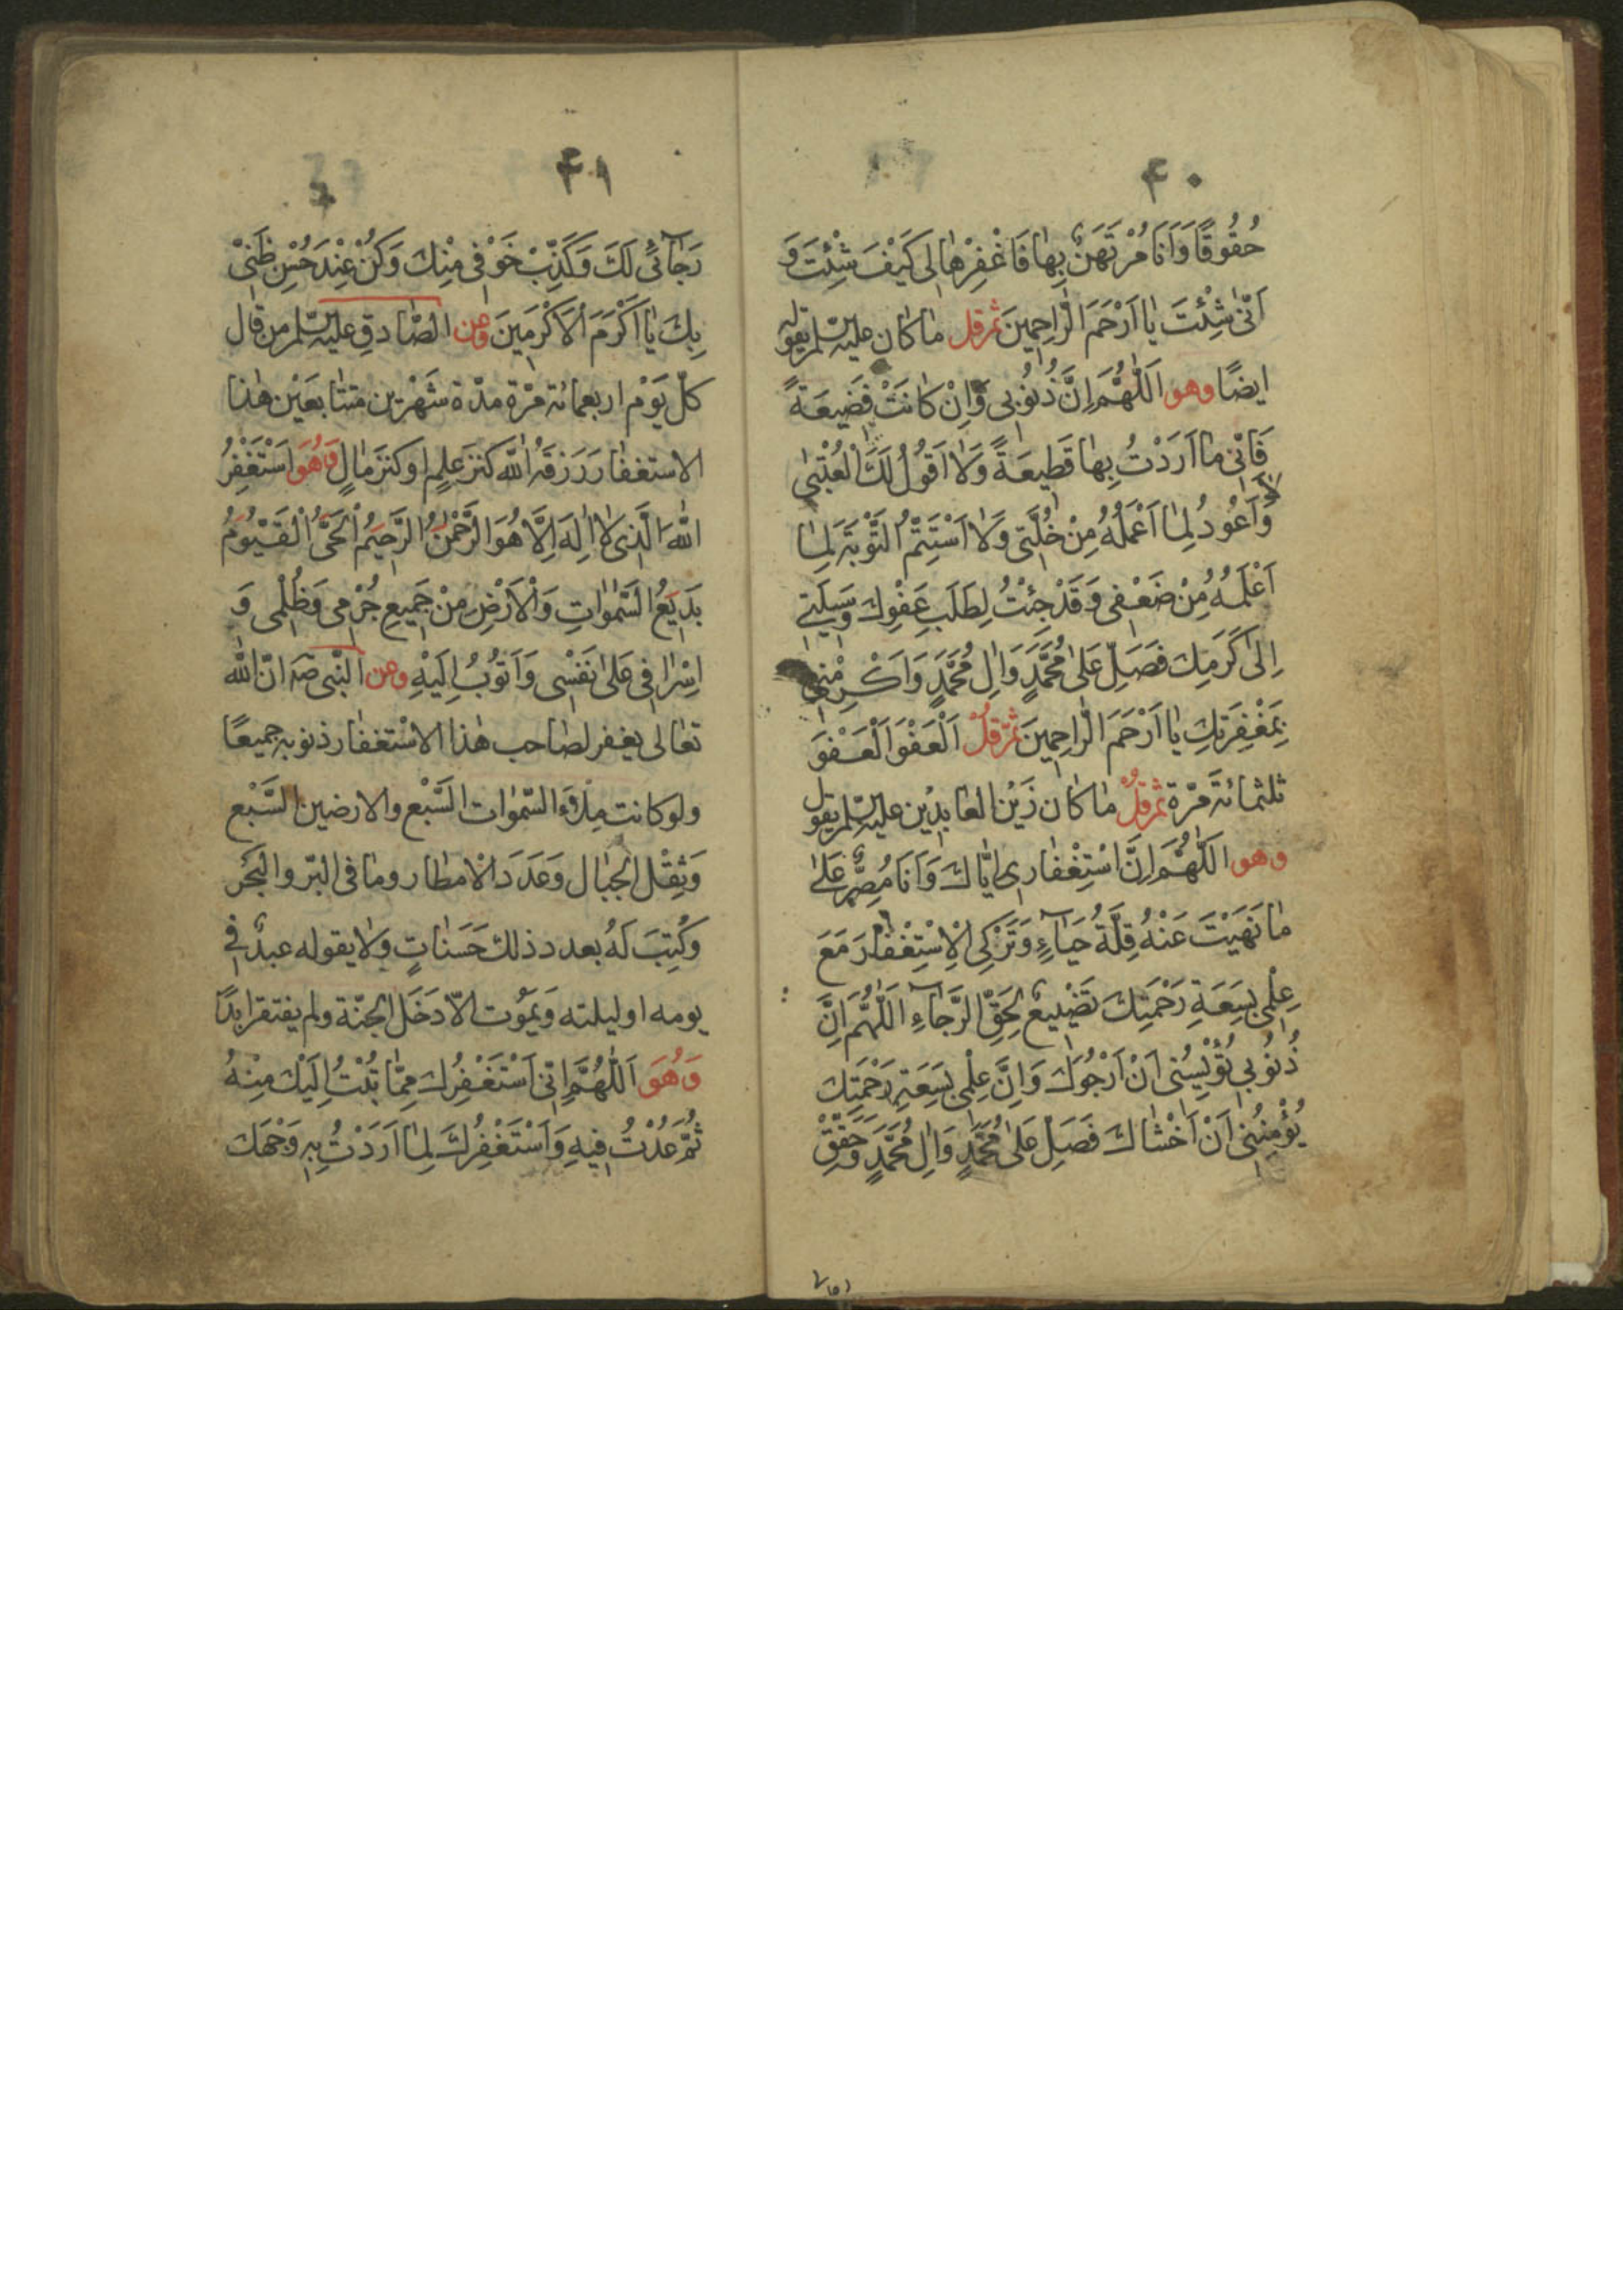 ۴۰
حُقُوقًا وَاَنَا مُرْتَهَنٌ بِهٰا فَاغْفِرْهٰا لى كَيْفَ شِئْتَ وَ
اَنّىٰ شِئْتَ يٰا اَرْحَمَ الرّٰاحِمِينَ ثمّ قل مٰا كٰان عليه السّلم يقوله
ايضًا وهو اَللّٰهُمَّ اِنَّ ذُنُوبى وَاِنْ كٰانَتْ فَضِيعَةً
فَاِنّى مٰا اَرَدْتُ بِهٰا قَطِيعَةً وَلٰا اَقُولُ لَكَ الْعُتْبىٰ
لا اَعُودُ لِمٰا اَعْمَلُهُ مِنْ خُلَّتى وَلٰا اَسْتَتِمُّ التَّوْبَةَ لِمٰا
اَعْلَمُهُ مِنْ ضَعْفى وَقَدْ جِئْتُ لِطَلَبِ عَفْوِكَ وَوَسيلَتى
اِلىٰ كَرَمِكَ فَصَلِّ عَلىٰ مُحَمَّدٍ وَاٰلِ مُحَمَّدٍ وَاَكْرِمْنى
بِمَغْفِرَتِكِ يٰا اَرْحَمَ الرّٰاحِمِينَ ثُمّ قُلْ اَلْعَفْوَ اَلْعَفْوَ
ثلثمائة مَرّة ثمّ قُلْ مٰا كٰان زَيْن العٰابدِيْن عليه السّلم يقول
وهو اللّٰهُمَّ اِنَّ اسْتِغْفٰارى اِيّٰاكَ وَاَنَا مُصِرٌّ عَلىٰ
مٰا نَهَيْتَ عَنْهُ قِلَّةُ حَيٰاۤءٍ وَتَرْكِى الْاِسْتِغْفٰارَ مَعَ
عِلْمى بِسَعَةِ رَحْمَتِكَ تَضْيِيعٌ لِحَقِّ الرَّجٰاۤءِ اَللّٰهُمَّ اِنَّ
ذُنُوبى تُؤْيِسُنى اَنْ اَرْجُوَكَ وَاِنَّ عِلْمى بِسَعَةِ رَحْمَتِكَ
يُؤْمِنُنى اَنْ اَخْشٰاكَ فَصَلِّ عَلىٰ مُحَمَّدٍ وَاٰلِ مُحَمَّدٍ وَحَقِّقْ
۴۱
رَجٰاۤئى لَكَ وَكَذِّبْ خَوْفى مِنْكَ وَكُنْ عِنْدَ حُسْنِ ظَنّى
بِكَ يٰا اَكْرَمَ الْاَكْرَمِينَ وعن الصّٰادق عليه السّلم من قٰال
كلّ يَوْم اربعمائة مرّة مدّة شَهْرَين متتٰابعَيْن هٰذا
الاستغفٰار رَزقهُ اللّٰه كنز علمٍ او كنز مٰالٍ وَهُوَ اَسْتَغْفِرُ
اللّٰهَ الَّذى لٰا اِلٰهَ اِلَّا هُوَ الرَّحْمٰنُ الرَّحيمُ الْحَىُّ الْقَيُّومُ
بَديعُ السَّمٰوٰاتِ وَالْاَرْضِ مِنْ جَميعِ جُرْمى وَظُلْمى وَ
اِسْرٰافى عَلىٰ نَفْسى وَاَتُوبُ اِلَيْهِ وعن النّبى صه انّ اللّٰه
تعٰالى يغفر لصٰاحب هٰذا الاسْتغفٰار ذنوبه جميعًا
ولو كانت مِلْؤَ السّمٰوٰات السَّبْع والارضين السَّبْع
وَثِقْلَ الجبٰال وَعَدَدَ الْامطار ومٰا فى البرّ والبَحْر
وَكُتِبَ لَهُ بعدد ذلك حَسَنٰاتٍ وَلٰا يقوله عبدٌ فى
يومه او ليلته وَيَمُوت الّا دَخَلَ الجنّة ولم يفتقر ابدًا
وَهُوَ اَللّٰهُمَّ اِنّى اَسْتَغْفِرُكَ مِمّٰا تُبْتُ اِلَيْكَ مِنْهُ
ثُمَّ عُدْتُ فيهِ وَاَسْتَغْفِرُكَ لِمٰا اَرَدْتُ بِهِ وَجْهَكَ